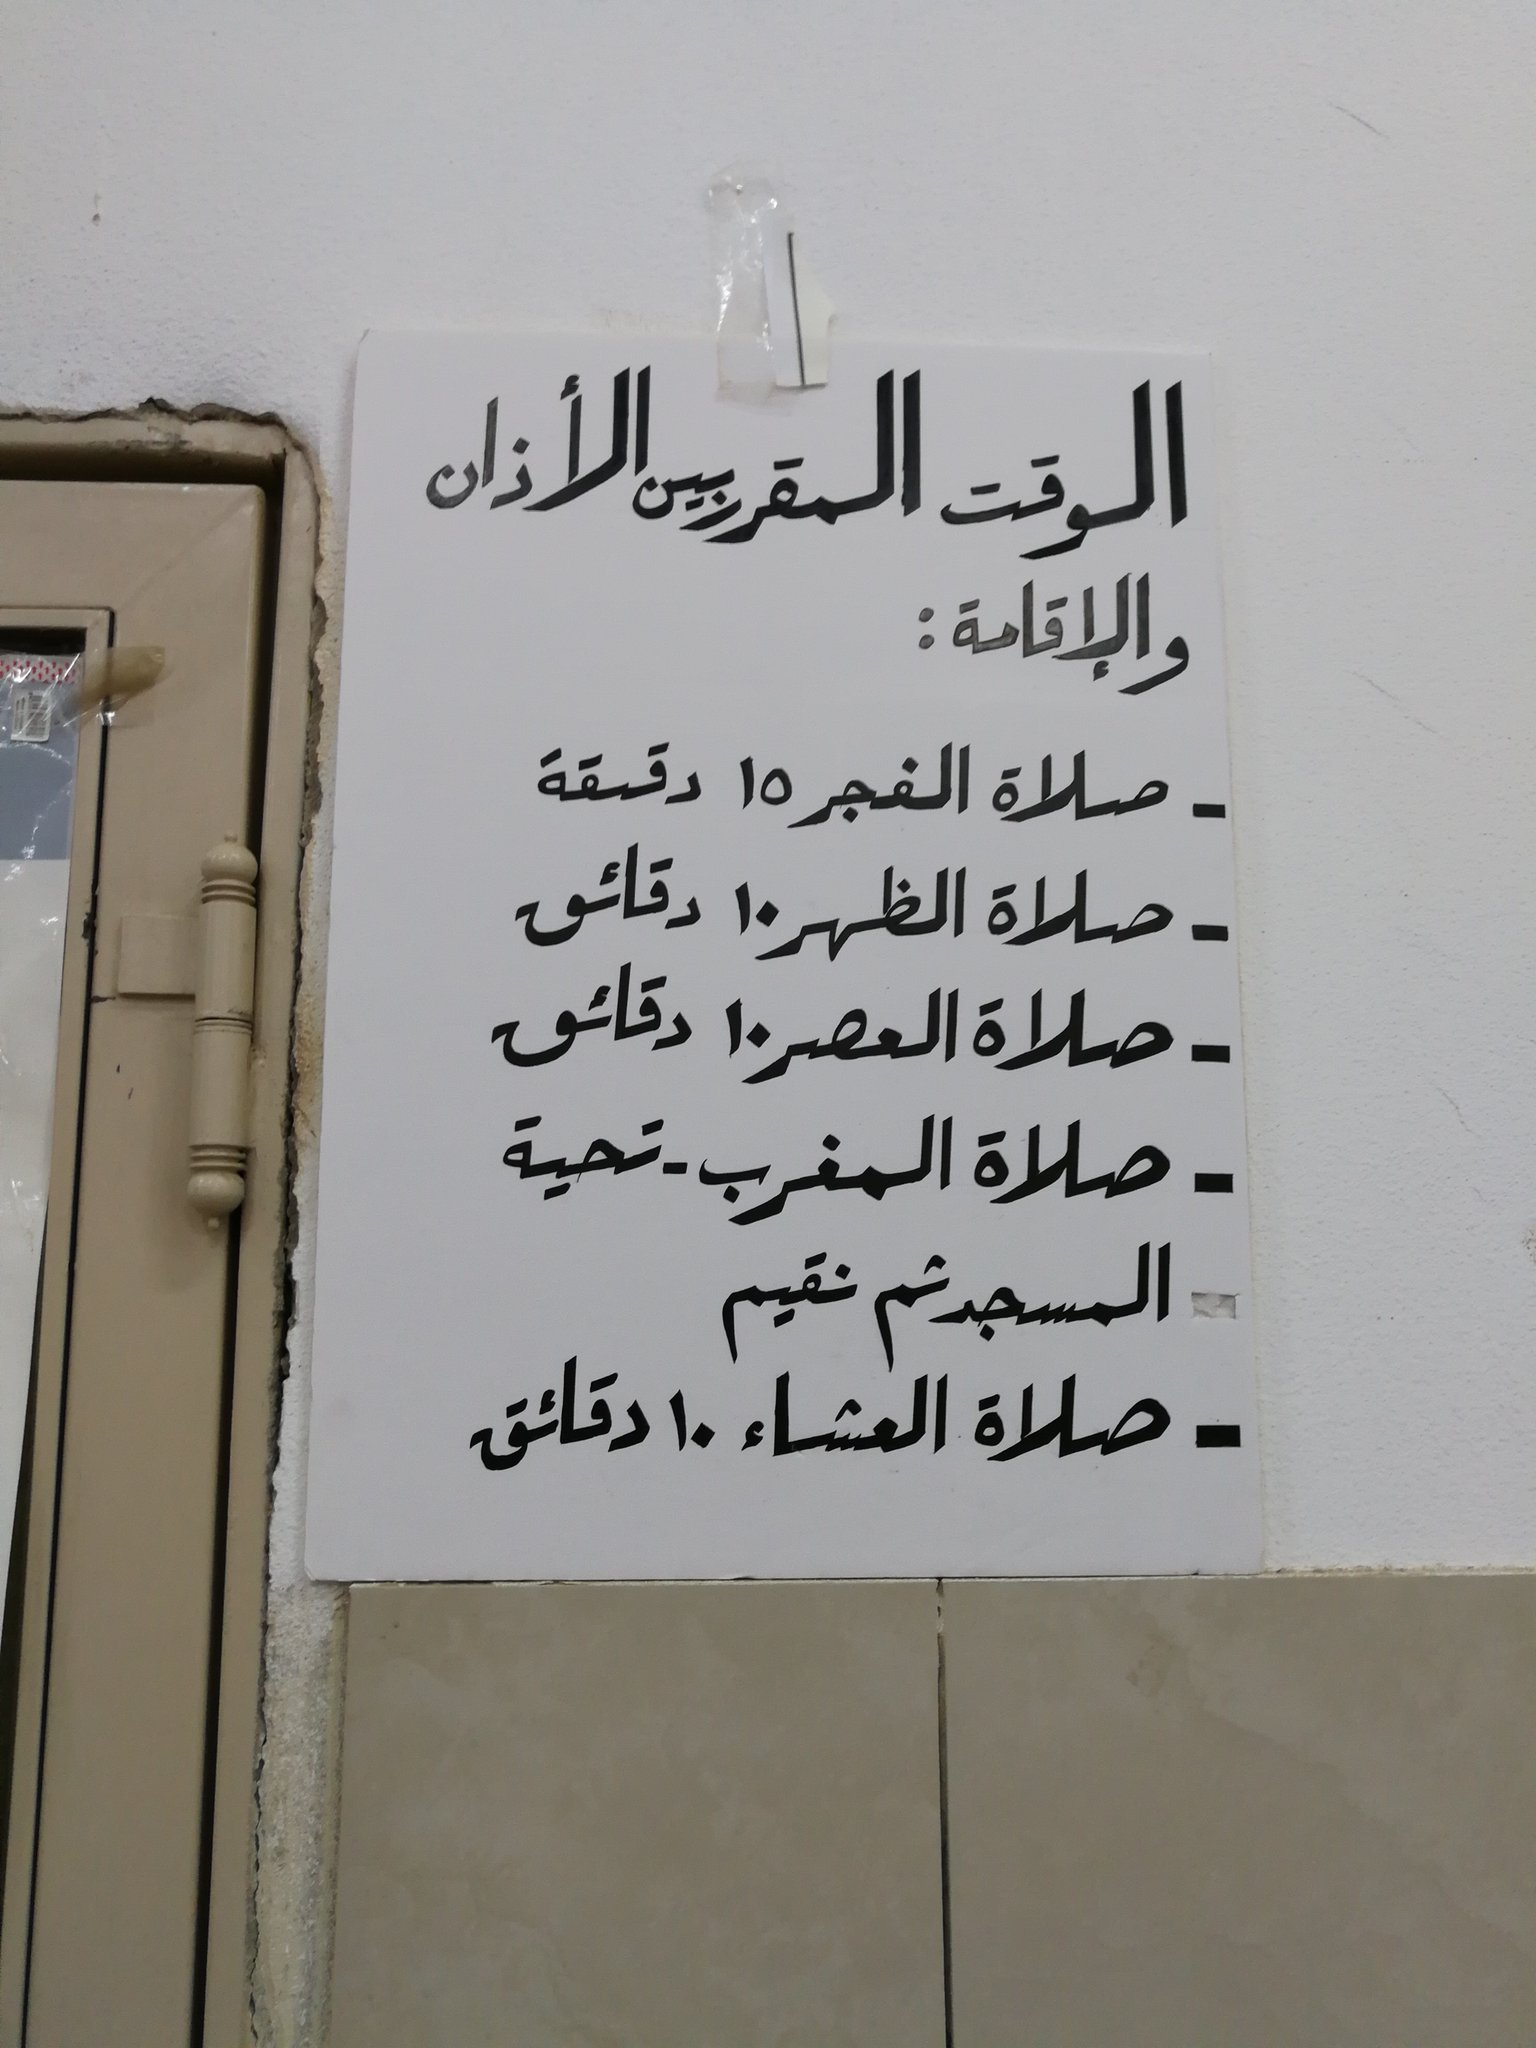 الوقت المقرر بين الأذان
والإقامة :
- صلاة الفجر ١٥ دقيقة
- صلاة الظهر ١٠ دقائق
- صلاة العصر ١٠ دقائق
- صلاة المغرب - تحية
المسجد ثم نقيم
- صلاة العشاء ١٠ دقائق